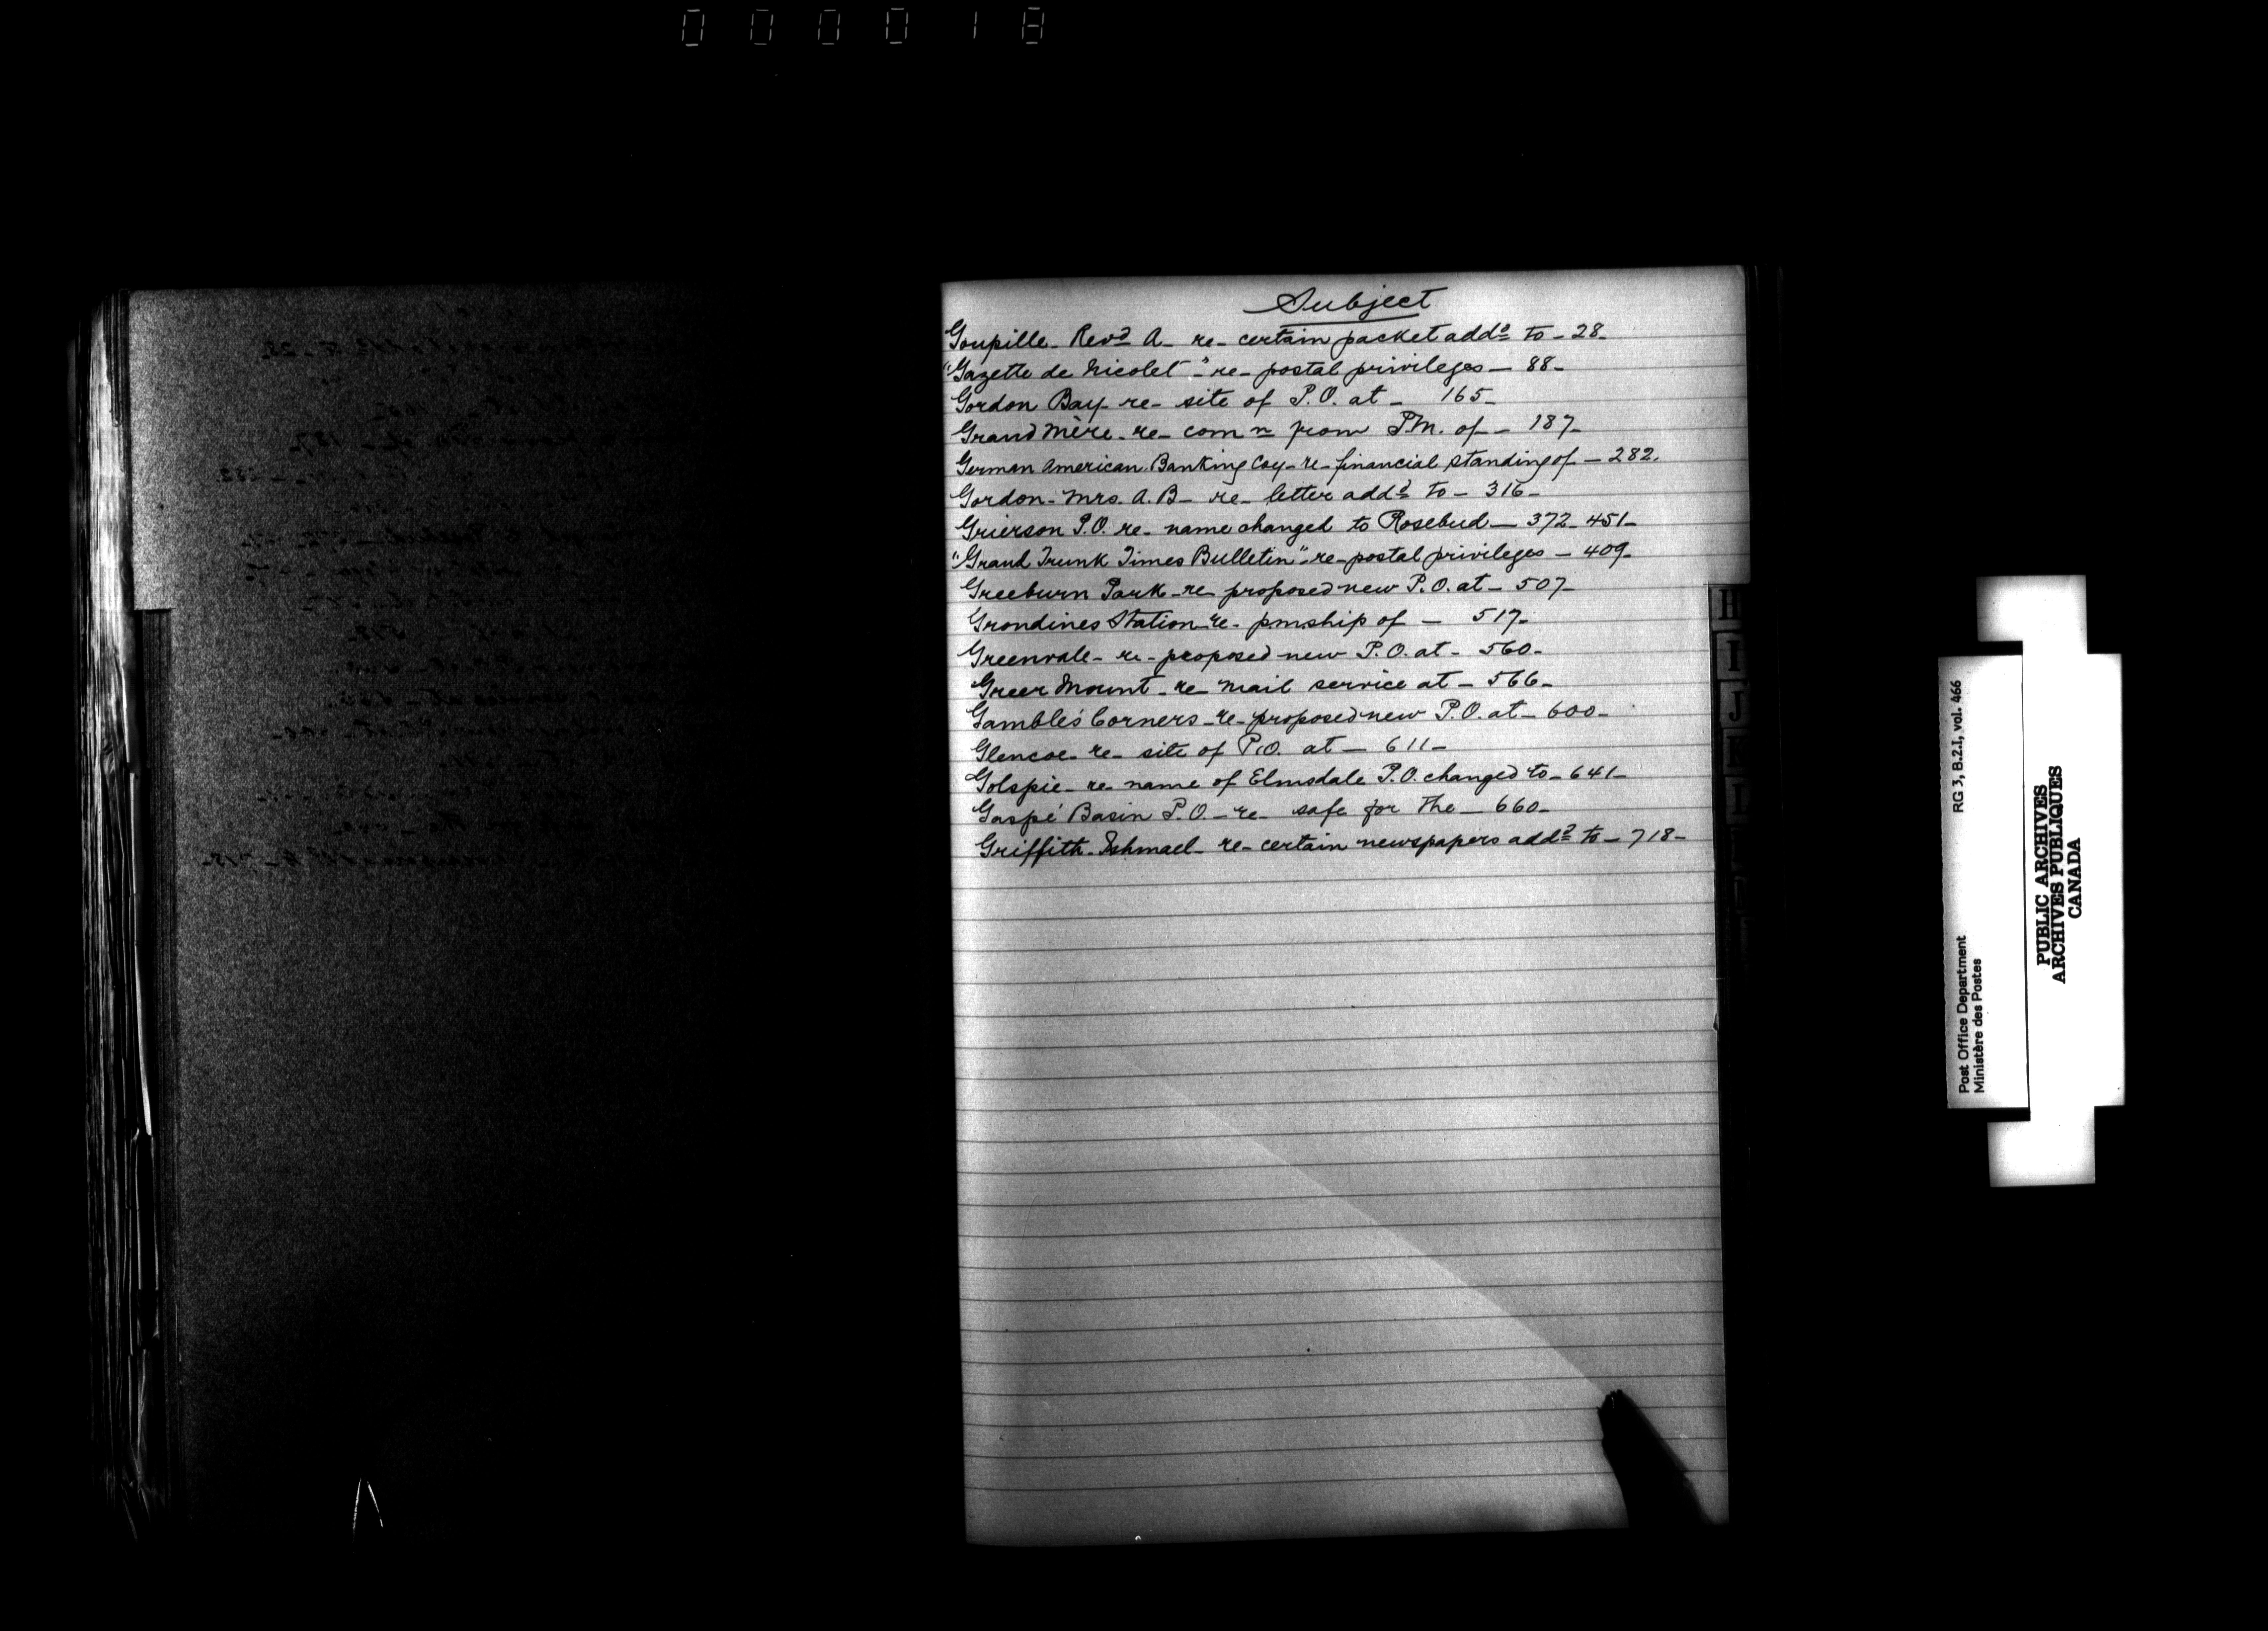 000018
Subject
Goupille - Revd A - re - certain packet addd to - 28 -
"Gazette de Nicolet" - re - postal privileges - 88 -
Gordon Bay - re - site of P.O. at - 165 -
Grand Mère - re - com n from P.M. of - 187 -
German American Banking Coy - re - financial standing of - 282.
Gordon - Mrs. A. B - re - letter addd to - 316 -
Grierson P.O. re - name changed to Rosebud - 372 - 451 -
"Grand Trunk Times Bulletin" - re - postal privileges - 409 -
Greeburn Park - re - proposed new P.O. at - 507 -
Grondines Station - re - pmship of - 517 -
Greenvale - re - proposed new P.O. at - 560 -
Greer Mount - re - mail service at - 566 -
Gamble's Corners - re - proposed new P.O. at - 600 -
Glencoe - re - site of P.O. at - 611 -
Golspie - re - name of Elmsdale P.O. changed to - 641 -
Gaspé Basin P.O. - re - safe for the - 660 -
Griffith - Ishmael - re - certain newspapers addd to - 718 -
H
I
J
RG 3, B.2.I, vol. 466
Post Office Department
Ministère des Postes
PUBLIC ARCHIVES
ARCHIVES PUBLIQUES
CANADA